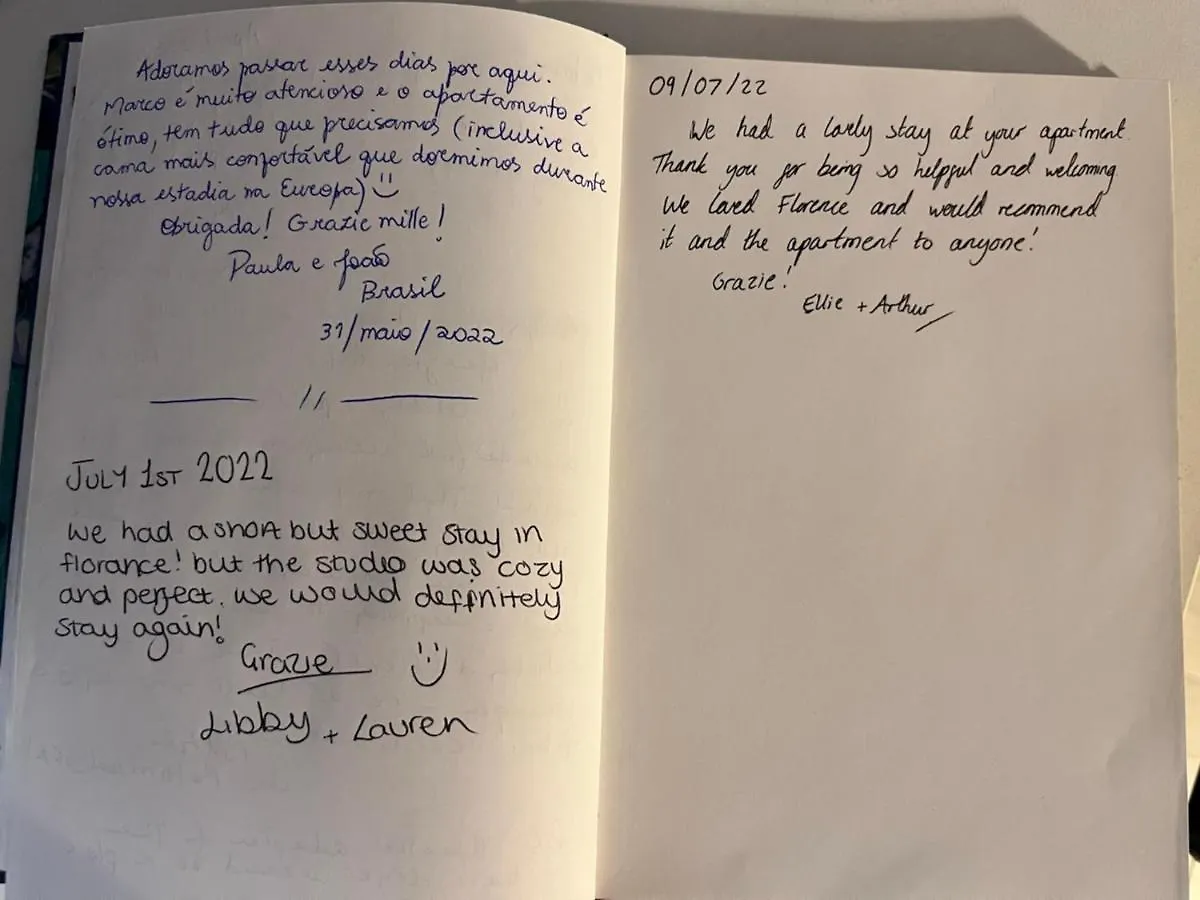 Adoramos passar esses dias por aqui.
Marco é muito atencioso e o apartamento é
ótimo, tem tudo que precisamos (inclusive a
cama mais confortável que dormimos durante
nossa estadia na Europa) :)
Obrigada! Grazie mille!
Paula e João
Brasil
31/maio/2022
//
JULY 1ST 2022
We had a short but sweet stay in
florance! but the studio was cozy
and perfect. we would definitely
stay again!
Grazie :)
Libby + Lauren
09/07/22
We had a lovely stay at your apartment.
Thank you for being so helpful and welcoming
We loved Florence and would recommend
it and the apartment to anyone!
Grazie!
Ellie + Arthur